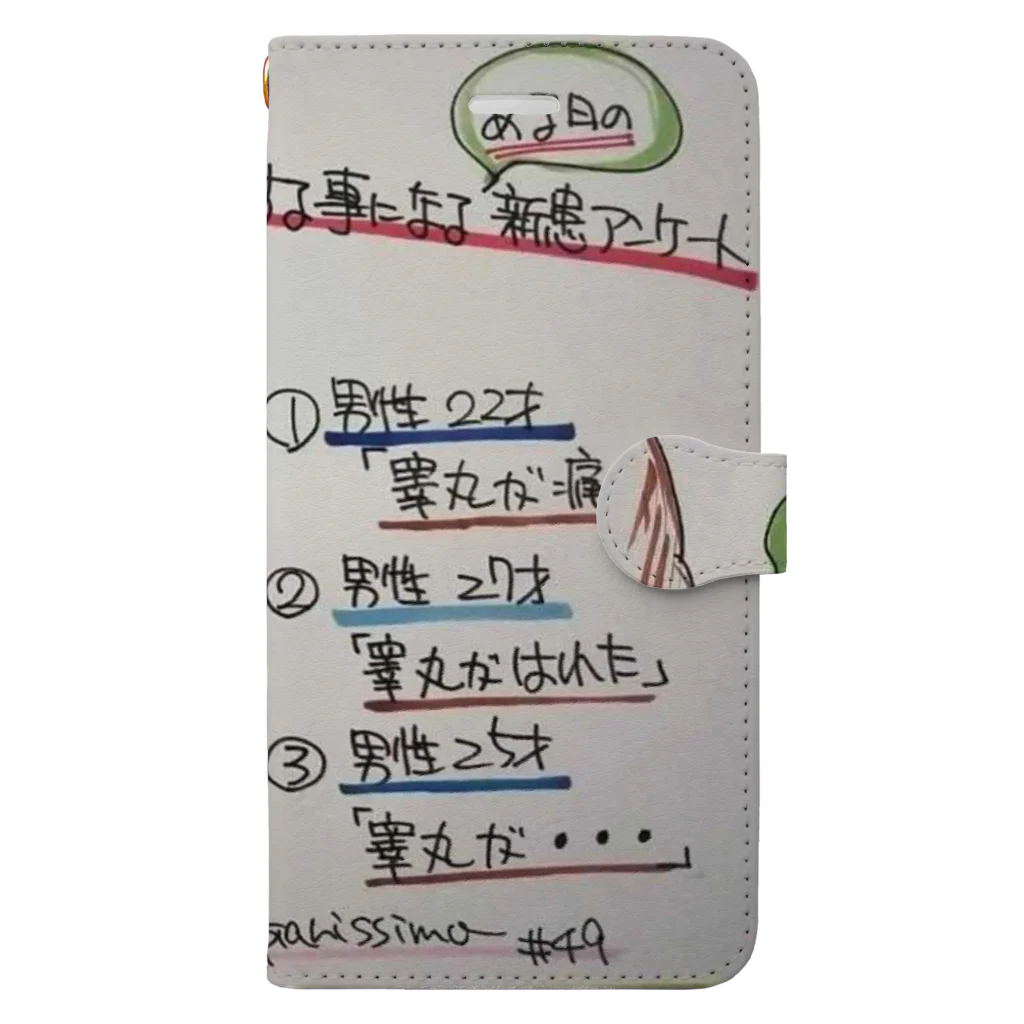 ある日の
な事になる 新患アンケート
① 男性 22才
「睾丸が痛
② 男性 27才
「睾丸がはれた」
③ 男性 25才
「睾丸が・・・」
anissimo #49